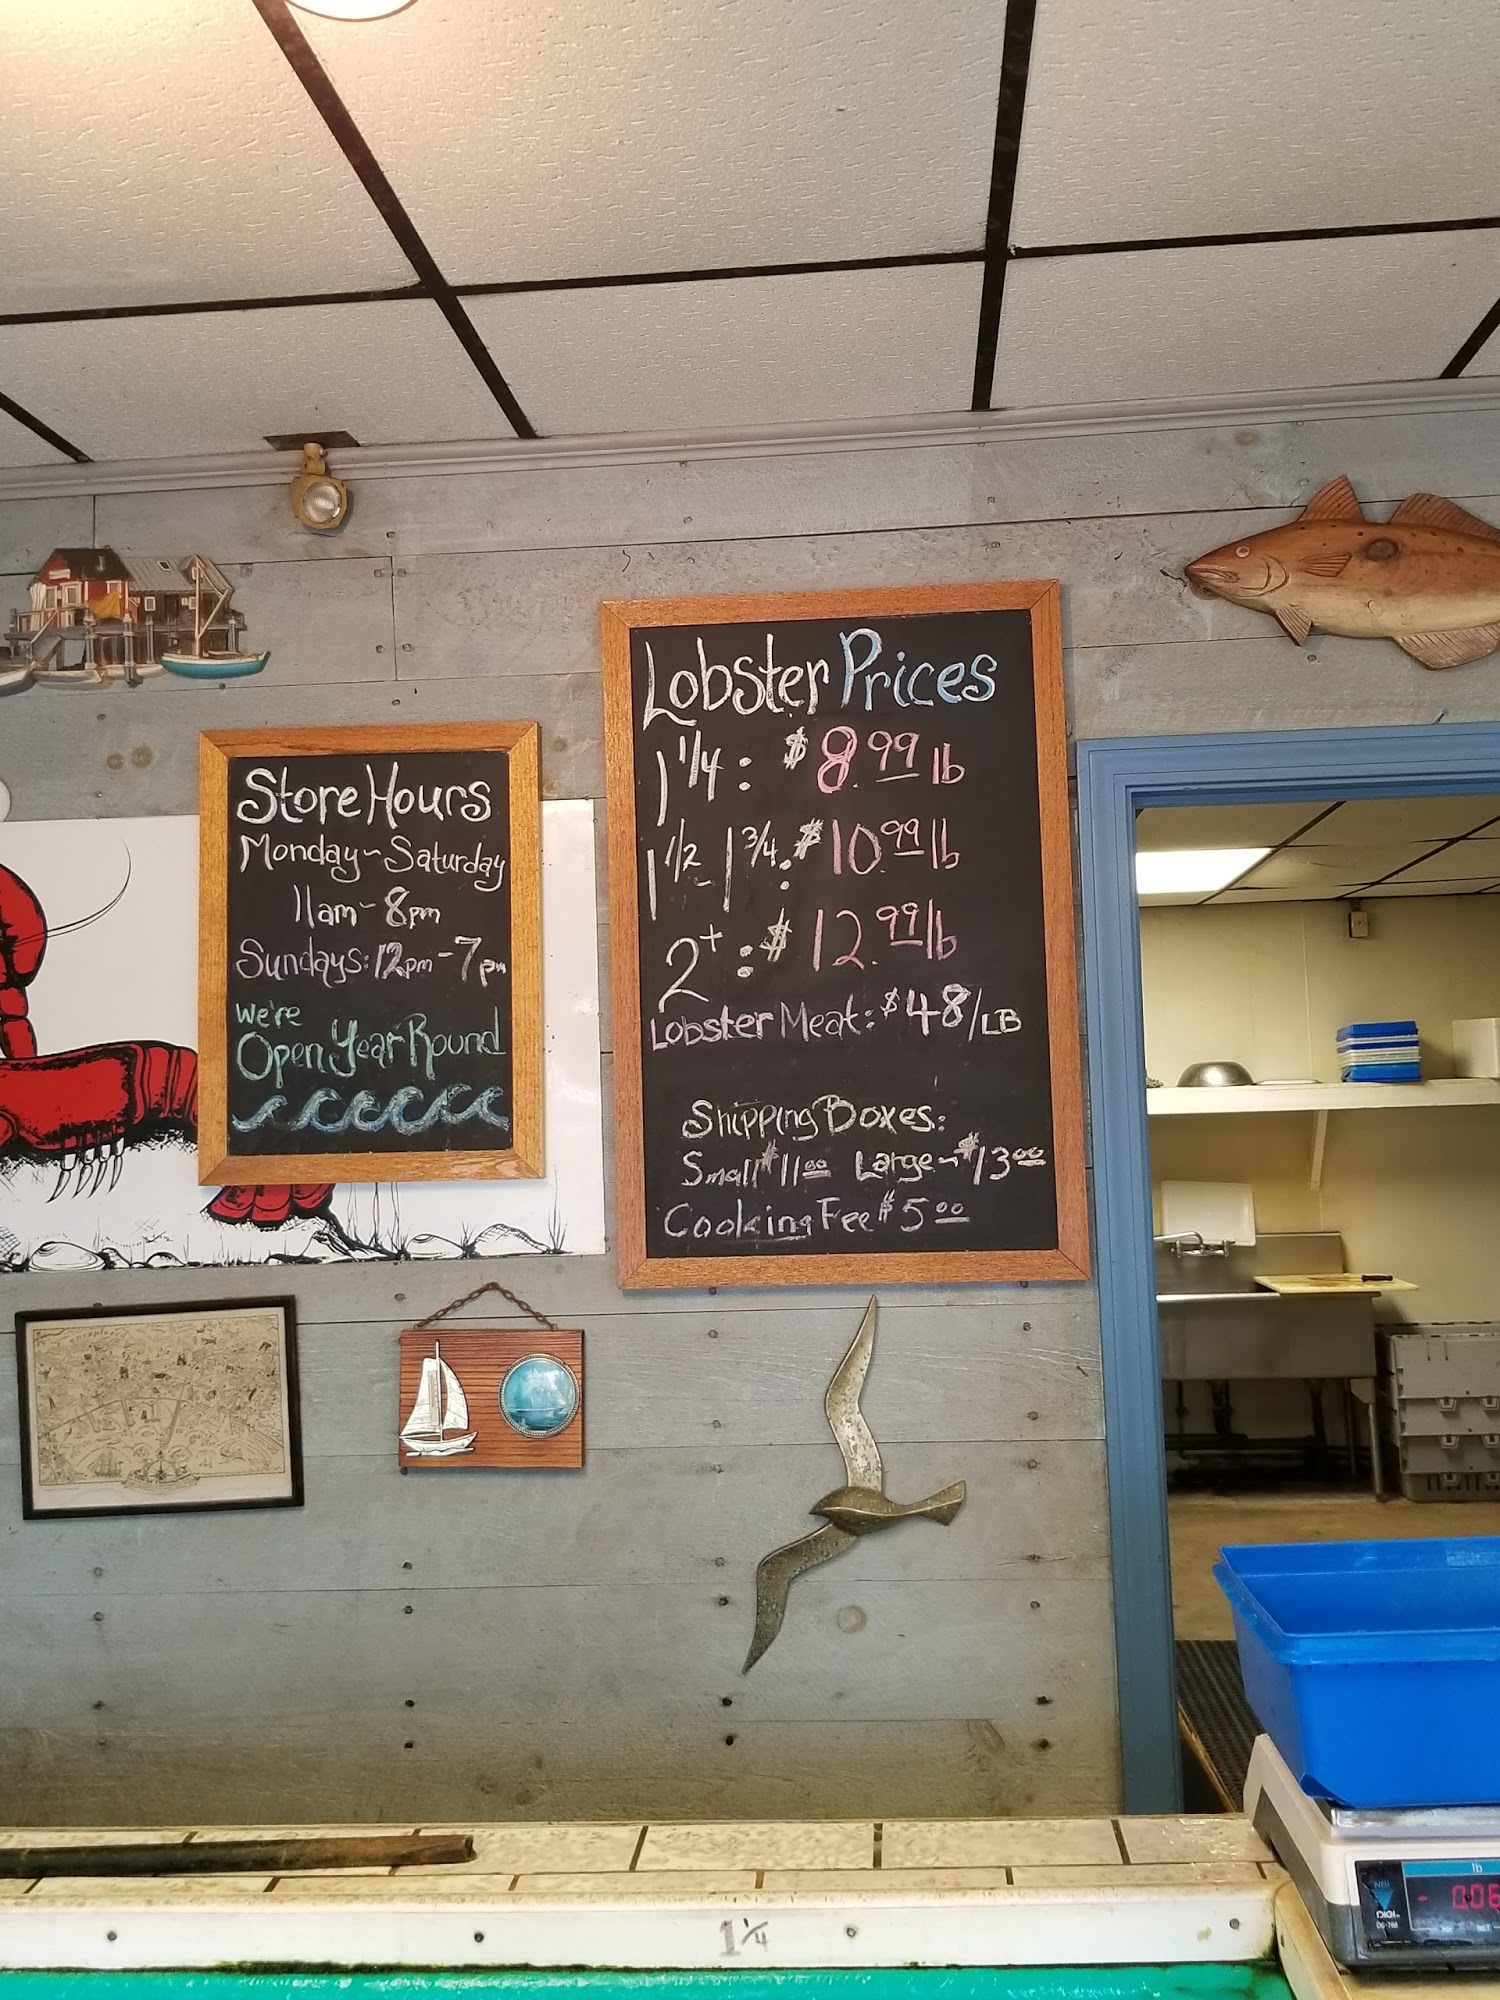 Store Hours
Monday~Saturday
11am-8pm
Sundays:12pm-7pm
We're
Open Year Round
Lobster Prices
1 1/4: $8.99 lb
1 1/2 - 1 3/4: $10.99 lb
2+: $12.99 lb
Lobster Meat: $48/LB
Shipping Boxes:
Small $11.00 Large~$13.00
Cooking Fee $5.00
unexplored
1 1/4
lb
DIGI
- 0.06